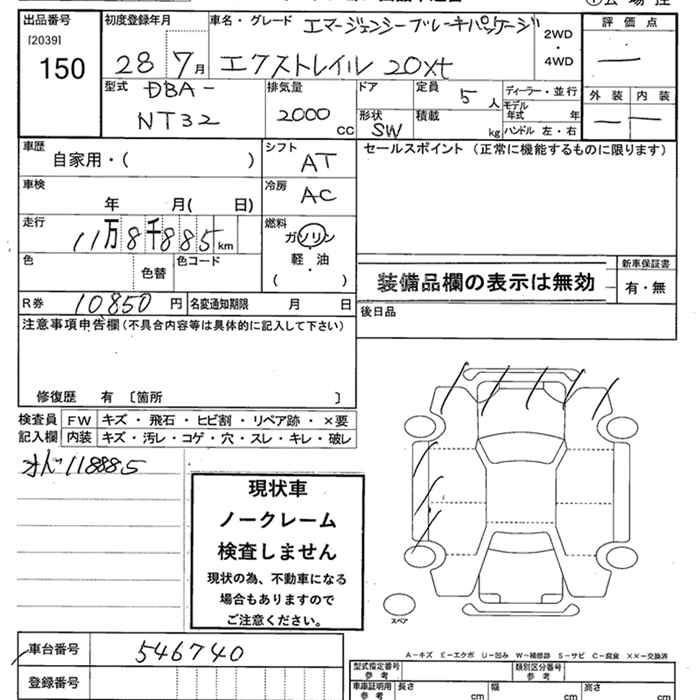 出品番号
[2039]
150
初度登録年月
28 7月
車名・グレード エマージェンシーブレーキパッケージ
エクストレイル 20xt
2WD
・
4WD
評価点
—
型式
DBA-
NT32
排気量
2000
cc
ドア
形状
SW
定員 5 人
積載 kg
ディーラー・並行
モデル年式 年
ハンドル 左・右
外装 内装
— —
車歴
自家用・( )
シフト
AT
セールスポイント(正常に機能するものに限ります)
車検
年 月( 日)
冷房
AC
走行
11万8千885km
燃料
ガソリン
軽・油
・
( )
色
色替
色コード
装備品欄の表示は無効
新車保証書
有・無
R券 10850 円
名変通知期限 月 日
後日品
注意事項申告欄(不具合内容等は具体的に記入して下さい)
修復歴 有 〔箇所 〕
検査員
記入欄
FW キズ・飛石・ヒビ割・リペア跡・×要
内装 キズ・汚レ・コゲ・穴・スレ・キレ・破レ
118885
現状車
ノークレーム
検査しません
現状の為、不動車になる
場合もありますので
ご注意ください。
スペア
A-キズ E-エクボ U-凹み W-補修跡 S-サビ C-腐食 XX-交換済
車台番号 546740
登録番号
型式指定番号
参考
類別区分番号
参考
車庫証明用
参考
長さ cm
幅 cm
高さ cm